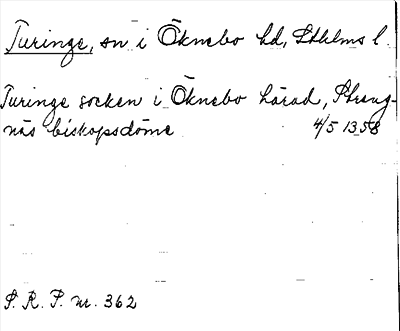 Turinge, sn i Öknebo hd, Sthlms l.
Turinge socken i Öknebo härad, Streng-
näs biskopsdöme 4/5 1358
S. R. P. nr. 362